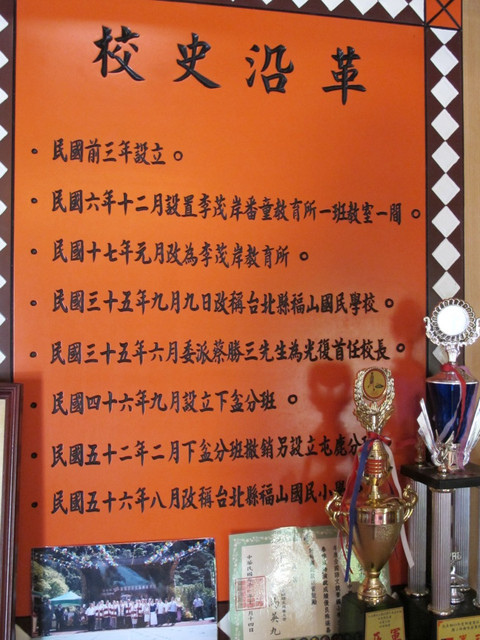 校史沿革
・民國前三年設立。
・民國六年十二月設置李茂岸番童教育所一班教室一間。
・民國十七年元月改為李茂岸教育所。
・民國三十五年九月九日改稱台北縣福山國民學校。
・民國三十五年六月委派蔡勝三先生為光復首任校長。
・民國四十六年九月設立下盆分班
・民國五十二年二月下盆分班撤銷另設立屯鹿分
・民國五十六年八月改稱台北縣福山國民小學
中華民國
馬英九